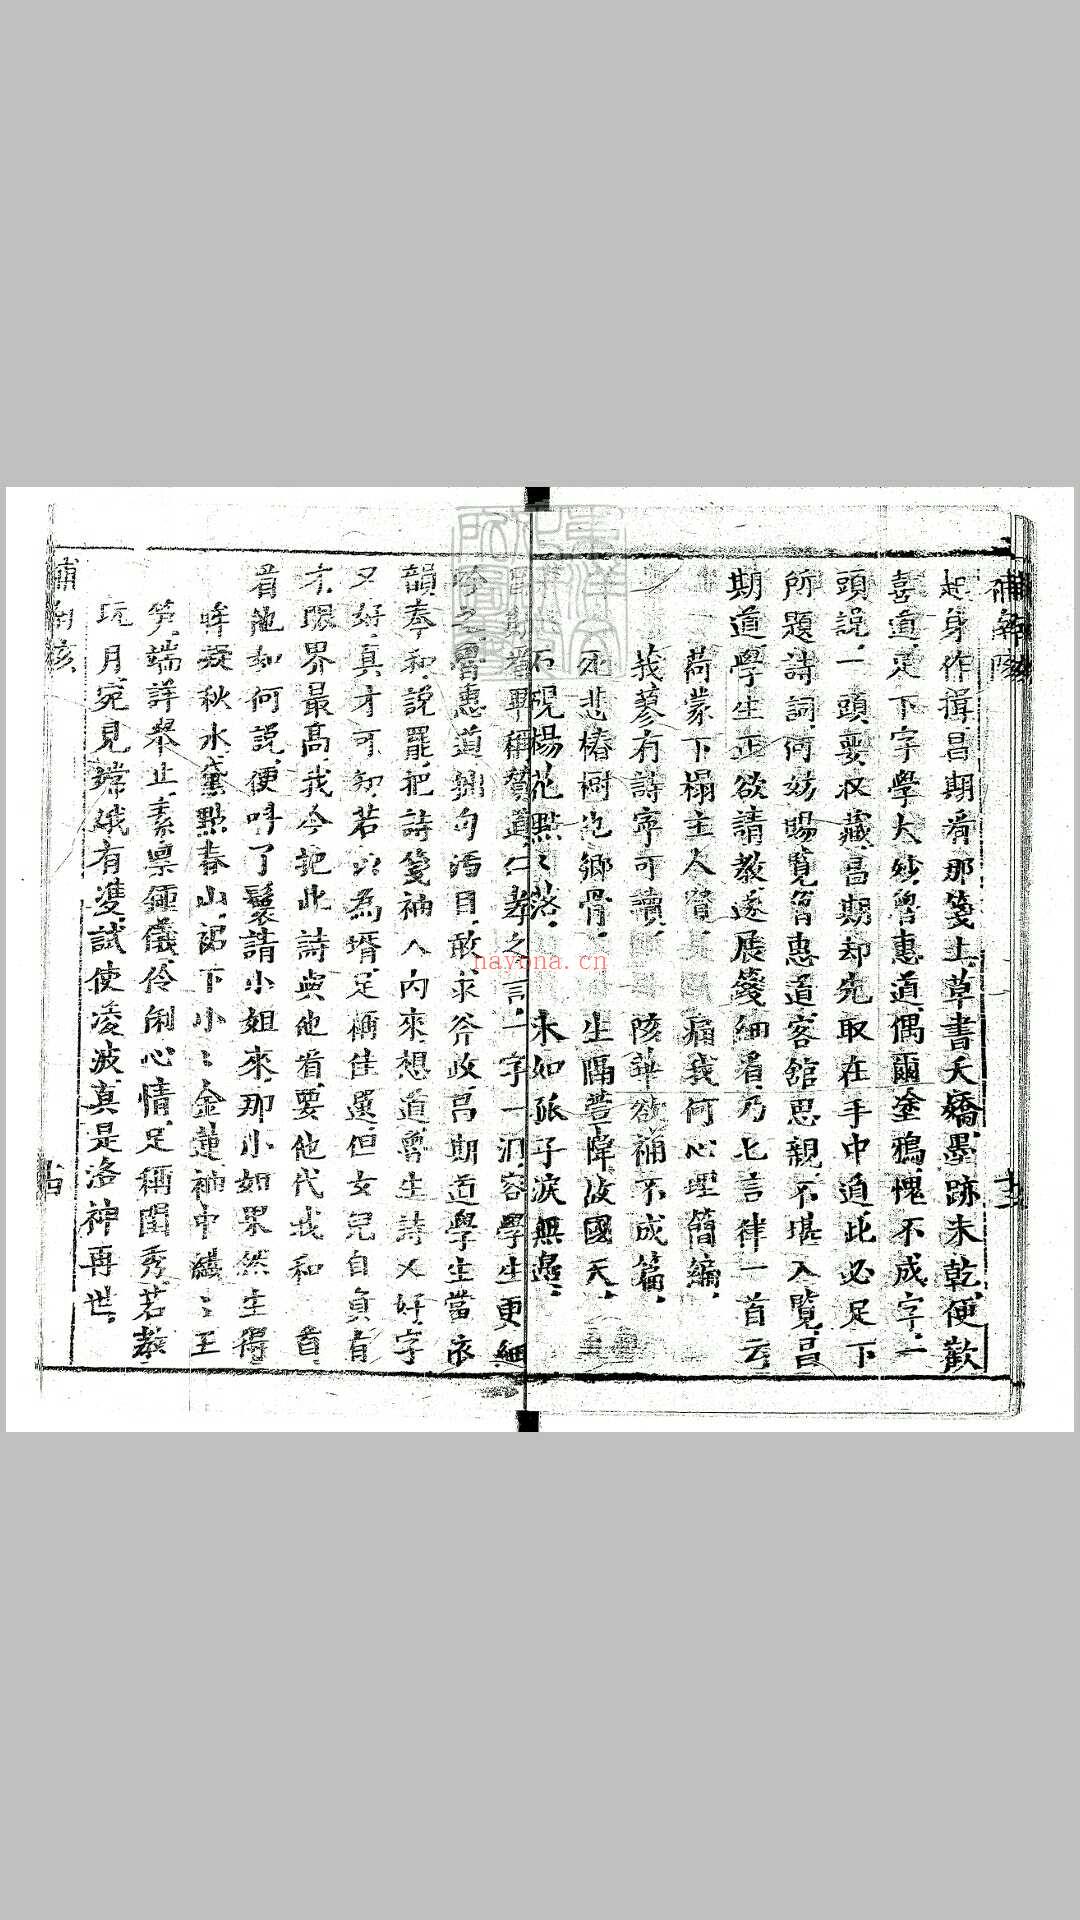 補南陔
起身作揖昌期看那箋上草書夭矯墨跡未乾便歡
喜道足下字學大妙魯惠道偶爾塗鴉愧不成字一
頭說一頭要收藏昌期却先取在手中道此必足下
所題詩詞何妨賜覽魯惠道客館思親不堪入覽昌
期道學生正欲請教遂展箋細看乃七言律一首云
荷蒙下榻主人賢 痛我何心理簡編
莪蓼有詩寧可讀 陔華欲補不成篇
死悲椿樹他鄉骨 生隔萱幃故國天
石硯楊花點點落 未如孤子淚無邊
昌期看畢稱贊道仁孝之言一字一淚容學生更細
吟之魯惠道拙句汚目敢求斧政昌期道學生當依
韻奉和說罷把詩箋袖入內來想道魯生詩又好字
又好真才可知若以為壻足稱佳選但女兒自負有
才眼界最高我今把此詩與他看要他代我和一首
看他如何說便呌丫鬟請小姐來那小姐果然生得
眸凝秋水黛點春山裙下小小金蓮袖中纖纖玉
笋端詳舉止素禀鍾儀伶俐心情足稱閨秀若教
玩月宛見嫦娥有雙試使凌波真是洛神再世
補南陔
nayona.cn